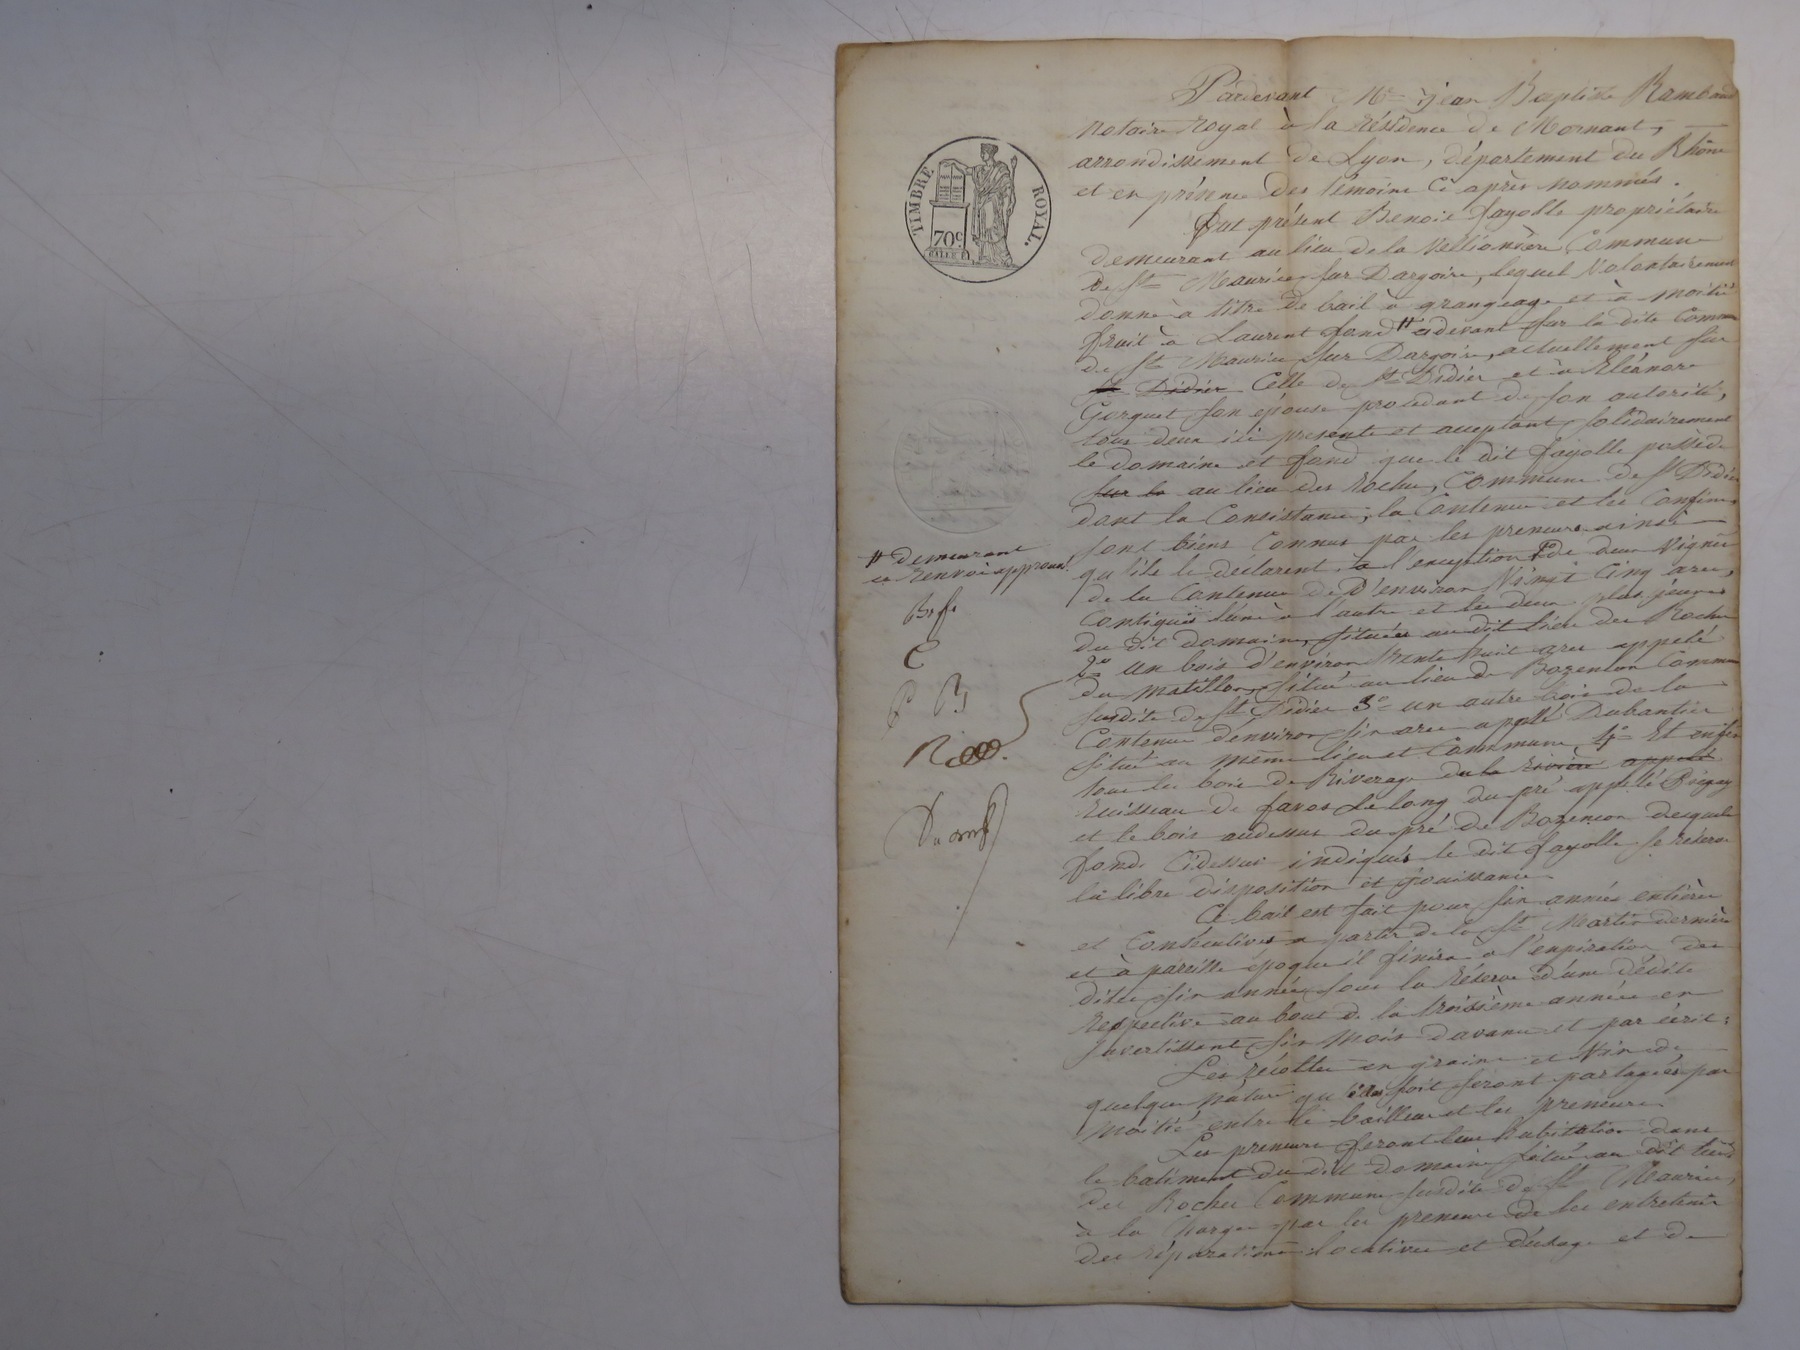 TIMBRE ROYAL.
70c
Pardevant Me jean Baptiste Rambaud
notaire royal à la résidence de Mornant,
arrondissement de Lyon, département du Rhône
et en présence des témoins ci après nommés.
fut présent Benoit fayolle propriétaire
demeurant au lieu de la Commune
de St Maurice sur Dargoire, lequel volontairement
donne à titre de bail à grangeage et à moitié
fruit à Laurent fond # cidevant sur la dite Commune
de St Maurice sur Dargoire, actuellement sur
St Didier Celle de St Didier et à Eléonore
Gorguet son épouse procédant de son autorité,
tous deux ici presents et acceptant solidairement
le domaine et fond que le dit fayolle possède
sur la au lieu des Roches, Commune de St Didier
dont la Consistance, la Contenue et les Confins
sont biens Connus par les preneurs ainsi
qu'ils le déclarent, à l'exception 1° de deux vignes
de la Contenue de D'environ Vingt Cinq ares,
Contiguës l'une à l'autre et les deux plus jeunes
du dit domaine, situées au dit lieu des Roches
2° un bois d'environ trente huit ares appelé
du Matillon, situé au lieu de Bozençon Commune
susdite de St Didier 3° un autre bois de la
Contenue d'environ six ares appellé Dubantier
situé au même lieu et Commune, 4° Et enfin
tous les bois de Riverage du la rivière appelé
Ruisseau de favos le long du pré appellé
et le bois audessus du pré de Bozençon desquels
fonds Cidessus indiqués le dit fayolle se réserve
la libre disposition et jouissance
Ce bail est fait pour six années entières
et Consécutives à partir de la St Martin dernière
et à pareille époque il finira à l'expiration des
dites six années sous la réserve d'une dédite
respective au bout de la troisième année en
s'avertissant six mois d'avance et par écrit.
Les récoltes en grains et Vin de
quelque nature qu'elles soit seront partagées par
moitié entre le bailleur et les preneurs
Les preneurs feront leur habitation dans
le batiment du dit domaine situé au dit lieu
des Roches Commune susdite de St Maurice,
à la charge par les preneurs de les entretenir
des réparations locatives et d'usage et de
# demeurant
ce renvoi approuvé